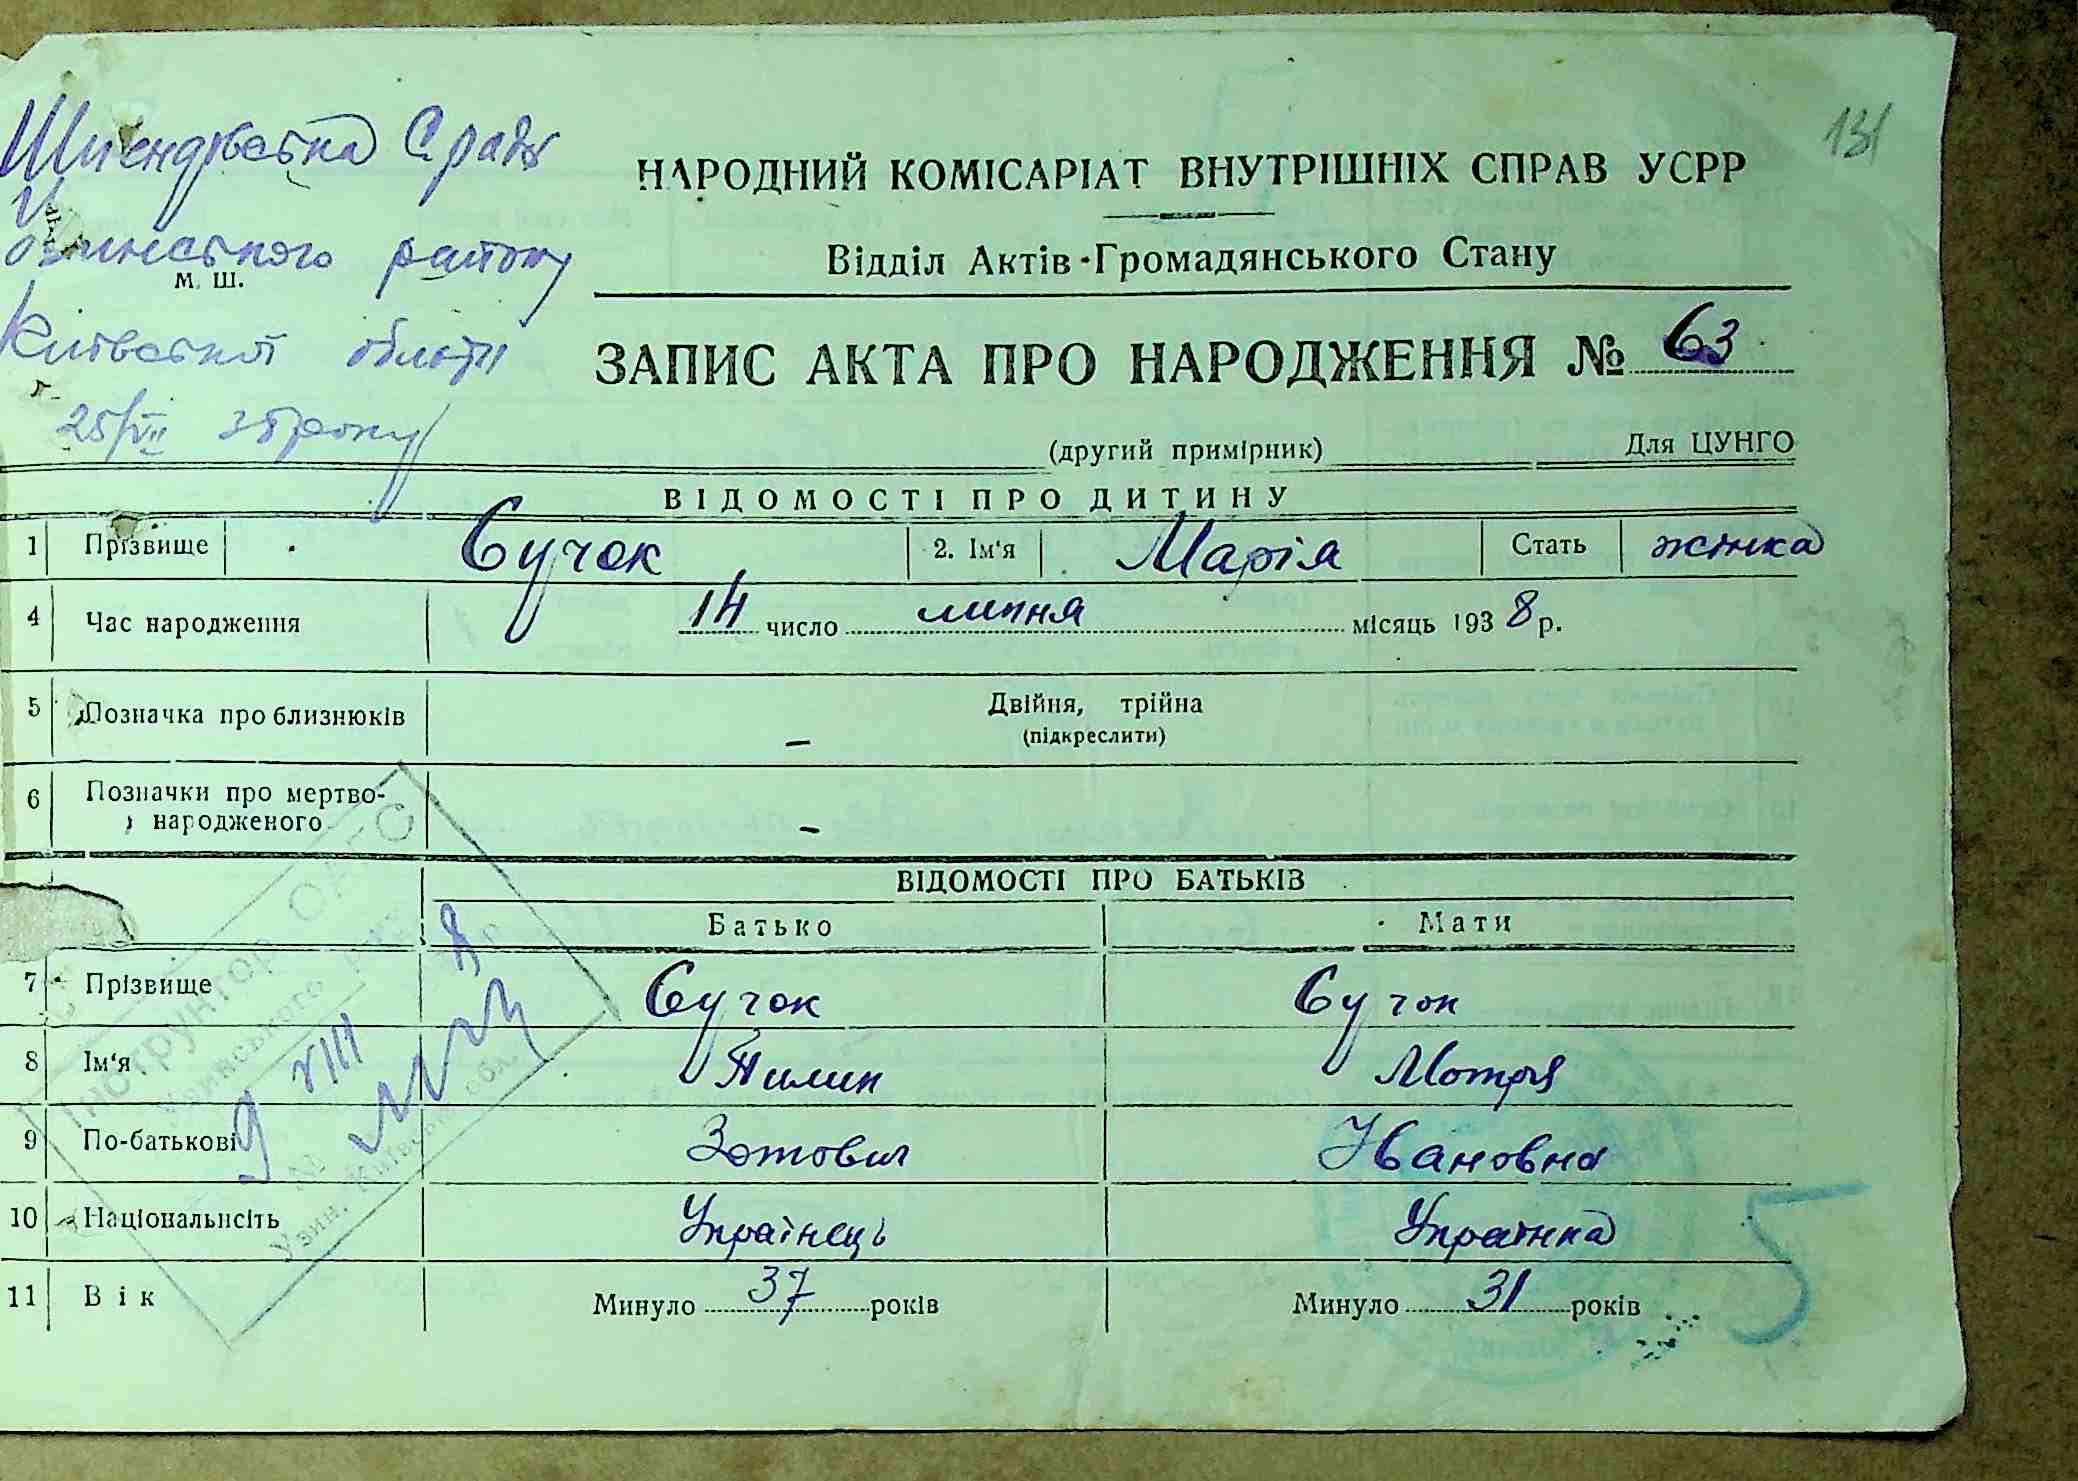 131
Шпендівська С. рада
Узинського району
м. Ш.
Київської області
25/VII 38 року
НАРОДНИЙ КОМІСАРІАТ ВНУТРІШНІХ СПРАВ УСРР
Відділ Актів Громадянського Стану
ЗАПИС АКТА ПРО НАРОДЖЕННЯ № 63
(другий примірник) Для ЦУНГО
ВІДОМОСТІ ПРО ДИТИНУ
1 Прізвище Сучок 2. Ім'я Марія Стать жінка
4 Час народження 14 число липня місяць 1938 р.
5 Позначка про близнюків Двійня, трійна
(підкреслити) –
6 Позначки про мертво-
народженого –
ВІДОМОСТІ ПРО БАТЬКІВ
Батько Мати
7 Прізвище Сучок Сучок
8 Ім'я Пилип Мотря
9 По-батькові Зотович Івановна
10 Національність Українець Українка
11 Вік Минуло 37 років Минуло 31 років
Інструктор ОАГС
Узинського району
9 VIII 8
№
Узин, Київської обл.
5